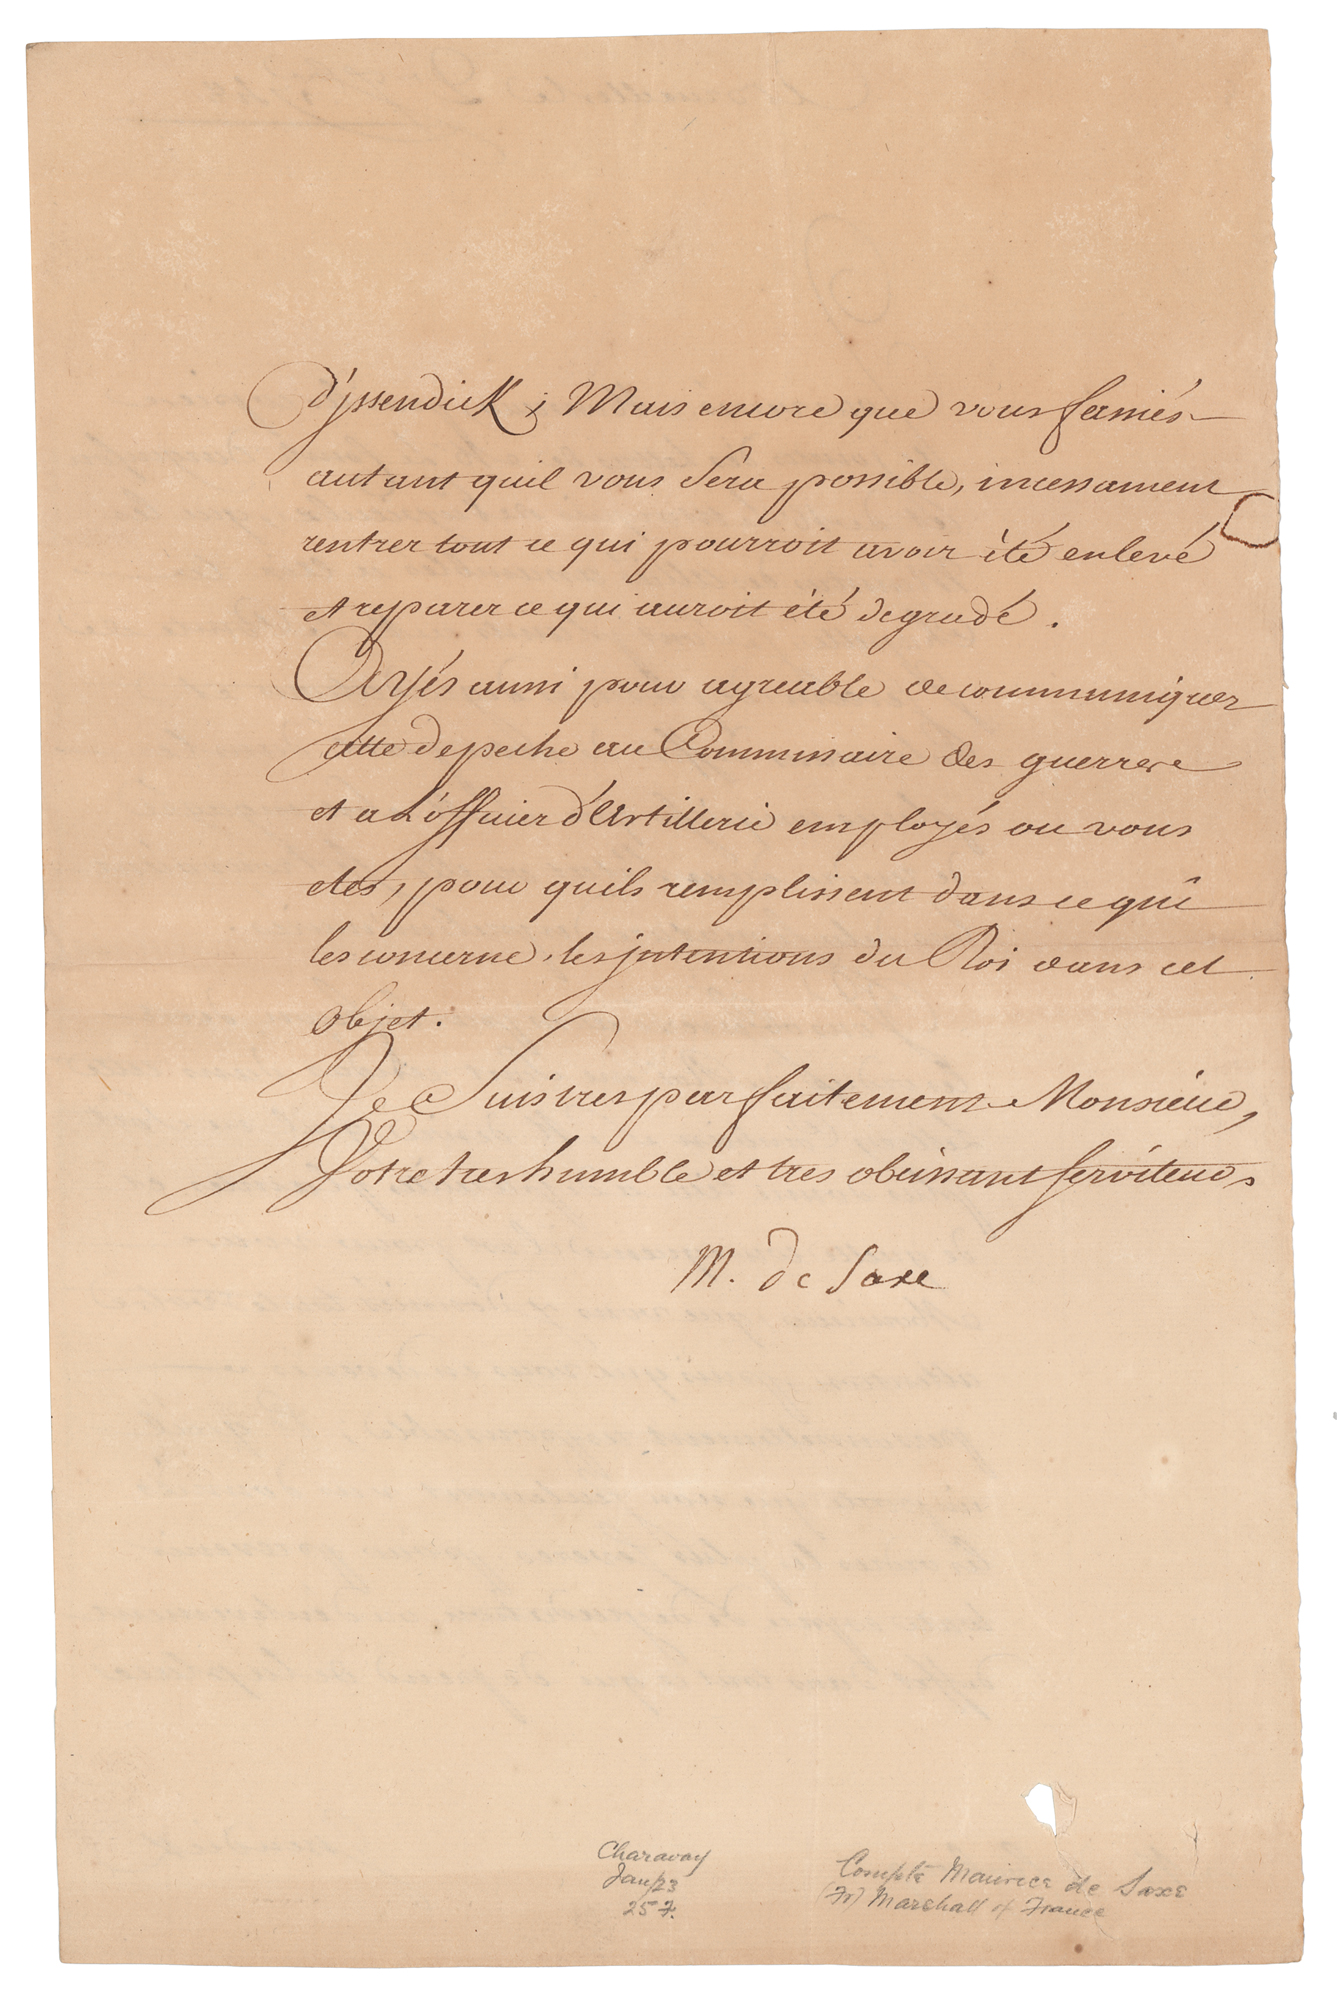 d'jssendick ; Mais encore que vous fassiés
autant quil vous sera possible, incessament
rentrer tout ce qui pourroit avoir été enlevé
et reparer ce qui auroit été degradé.
Ayés aussi pour agreable de communiquer
cette depeche au Commissaire des guerres
et a L'officier d'Artillerie employés ou vous
etes, pour quils remplissent dans ce qui
les concerne, les jntentions du Roi dans cet
objet.
Je suis tres parfaitement Monsieur,
Votre tres humble et tres obeissant serviteur.
M. de Saxe
Charavay
Jan/23
25 F.
Compte Maurice de Saxe
(Fr) Marshall of France